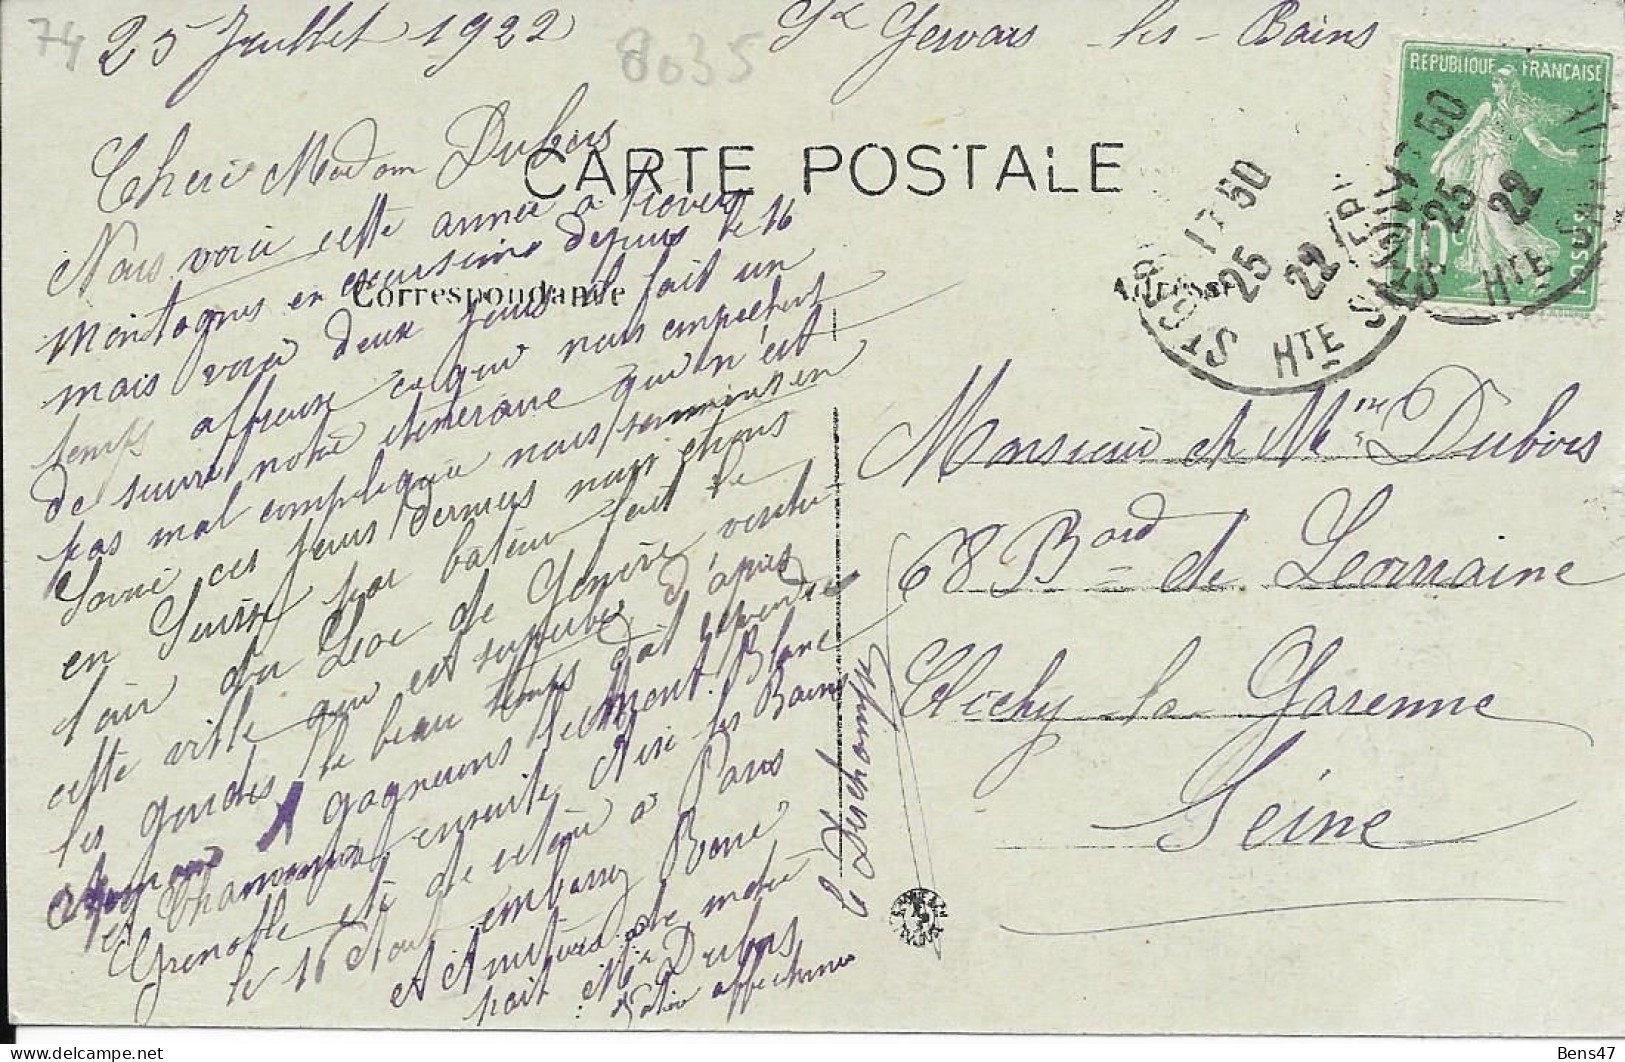 74
25 Juillet 1922
8035
St Gervais - les - Bains
REPUBLIQUE FRANÇAISE
10c
POSTES
17 50
25
22
HTE SAVOIE
CARTE POSTALE
Correspondance
Adresse
Cheri Madam Dubois
Nous voici cette année à travers
montagnes en excursions depuis le 16
mais voici deux jours il fait un
temps affreux ce qui nous empechent
de suivre notre itineraire qui n'est
pas mal compliquée nous sommes en
Savoie ces jours derniers nous etions
en Suisse par bateau fait le
tour du Lac de Genève visité
cette ville qui est superbe d'après
les guides le beau temps doit reprendre
demain gagnerons le Mont Blanc
et Chamonix, ensuite Aix les Bains
Grenoble et de retour à Paris
le 16 Aout embrassez René
et Amitiés de notre
part Mr Dubois
Votre affectionnée
Monsieur et Mme Dubois
68 Bard de Lorraine
Clichy la Garenne
Seine
Bens47